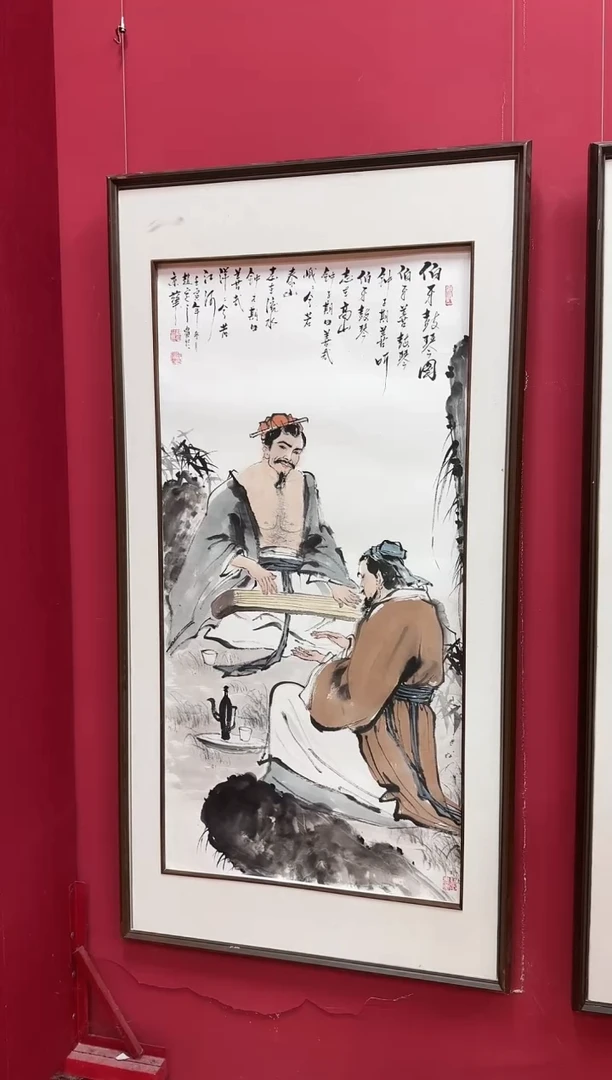 伯牙鼓琴图
伯牙善鼓琴
钟子期善听
伯牙鼓琴
志在高山
钟子期曰善哉
峨々兮若
泰山
志在流水
钟子期曰
善哉
洋々兮若
江河
壬寅年
京華